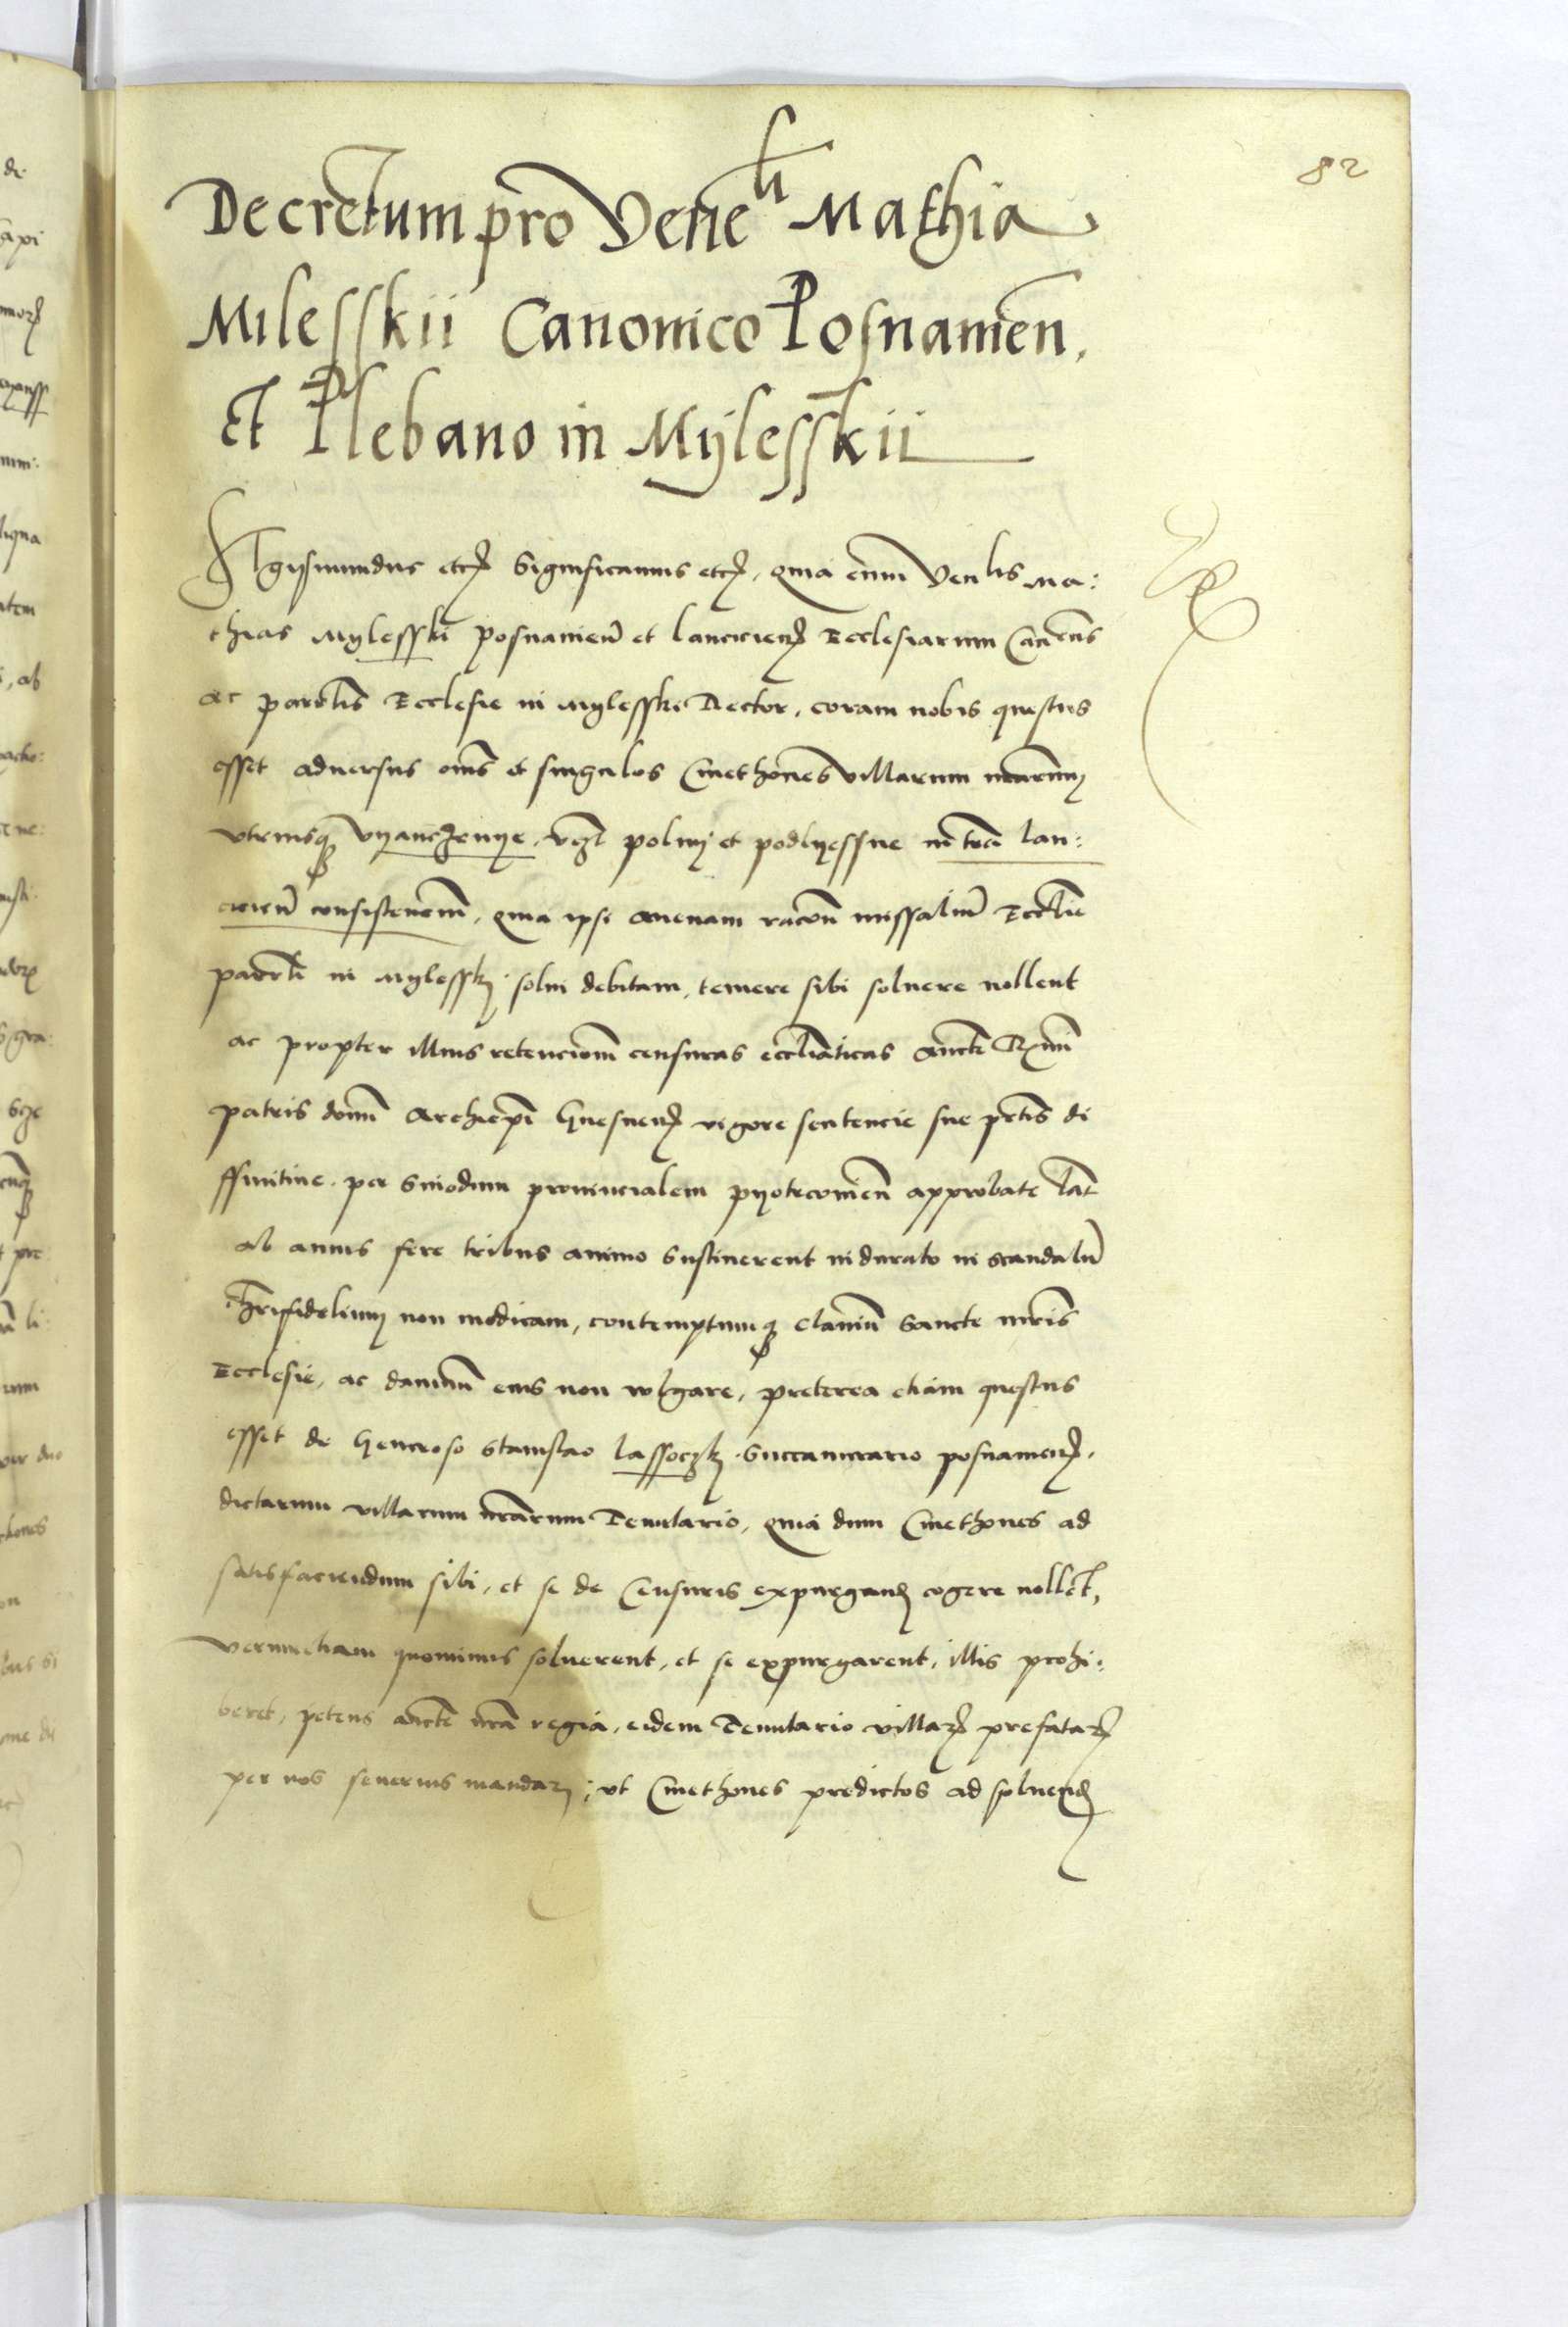 82
Decretum pro Veneli Mathia
Milesskii Canonico Posnanien.
Et Plebano in Mylesskii
Sigysmundus etc. Significamus etc. Quia cum Venlis Ma:
thias Mylesski posnanien et lancicien Ecclesiarum Cancus
ac parochlis Ecclesie in Mylesski Rector, coram nobis questus
esset adversus omes et singulos Cmethones villarum nrarum
utriusque Vyanczemye, polny et podlyessne in tra lan:
cicien consisten, quia ipsi avenam racon missalium Eccle
paroli in Mylessky solvi debitam, temere sibi solvere nollent
ac propter illius retencionem censuras eccliasticas aucte Rmi
patris domi Archiepi Gnesnen vigore sentencie sue di
ffinitive per Sinodum provincialem pyotrcovien approbate
ab annis fere tribus animo sustinerent indurato in scandalum
Chrifidelium non modicum, contemptumque clavium Sancte mris
Ecclesie, ac damnum eius non wlgare, preterea etiam questus
esset de Generoso Stanislao Lassoczky Succamerario posnanien,
dictarum villarum nrarum Tenutario, quia dum Cmethones ad
satisfaciendum sibi, et se de Censuris expurgand cogere nollet,
verumetiam quominus solverent, et se expurgarent, illis prohi:
beret, petens aucte nra regia, eidem Tenutario villar prefatar
per nos severius mandari, ut Cmethones predictos ad solvend